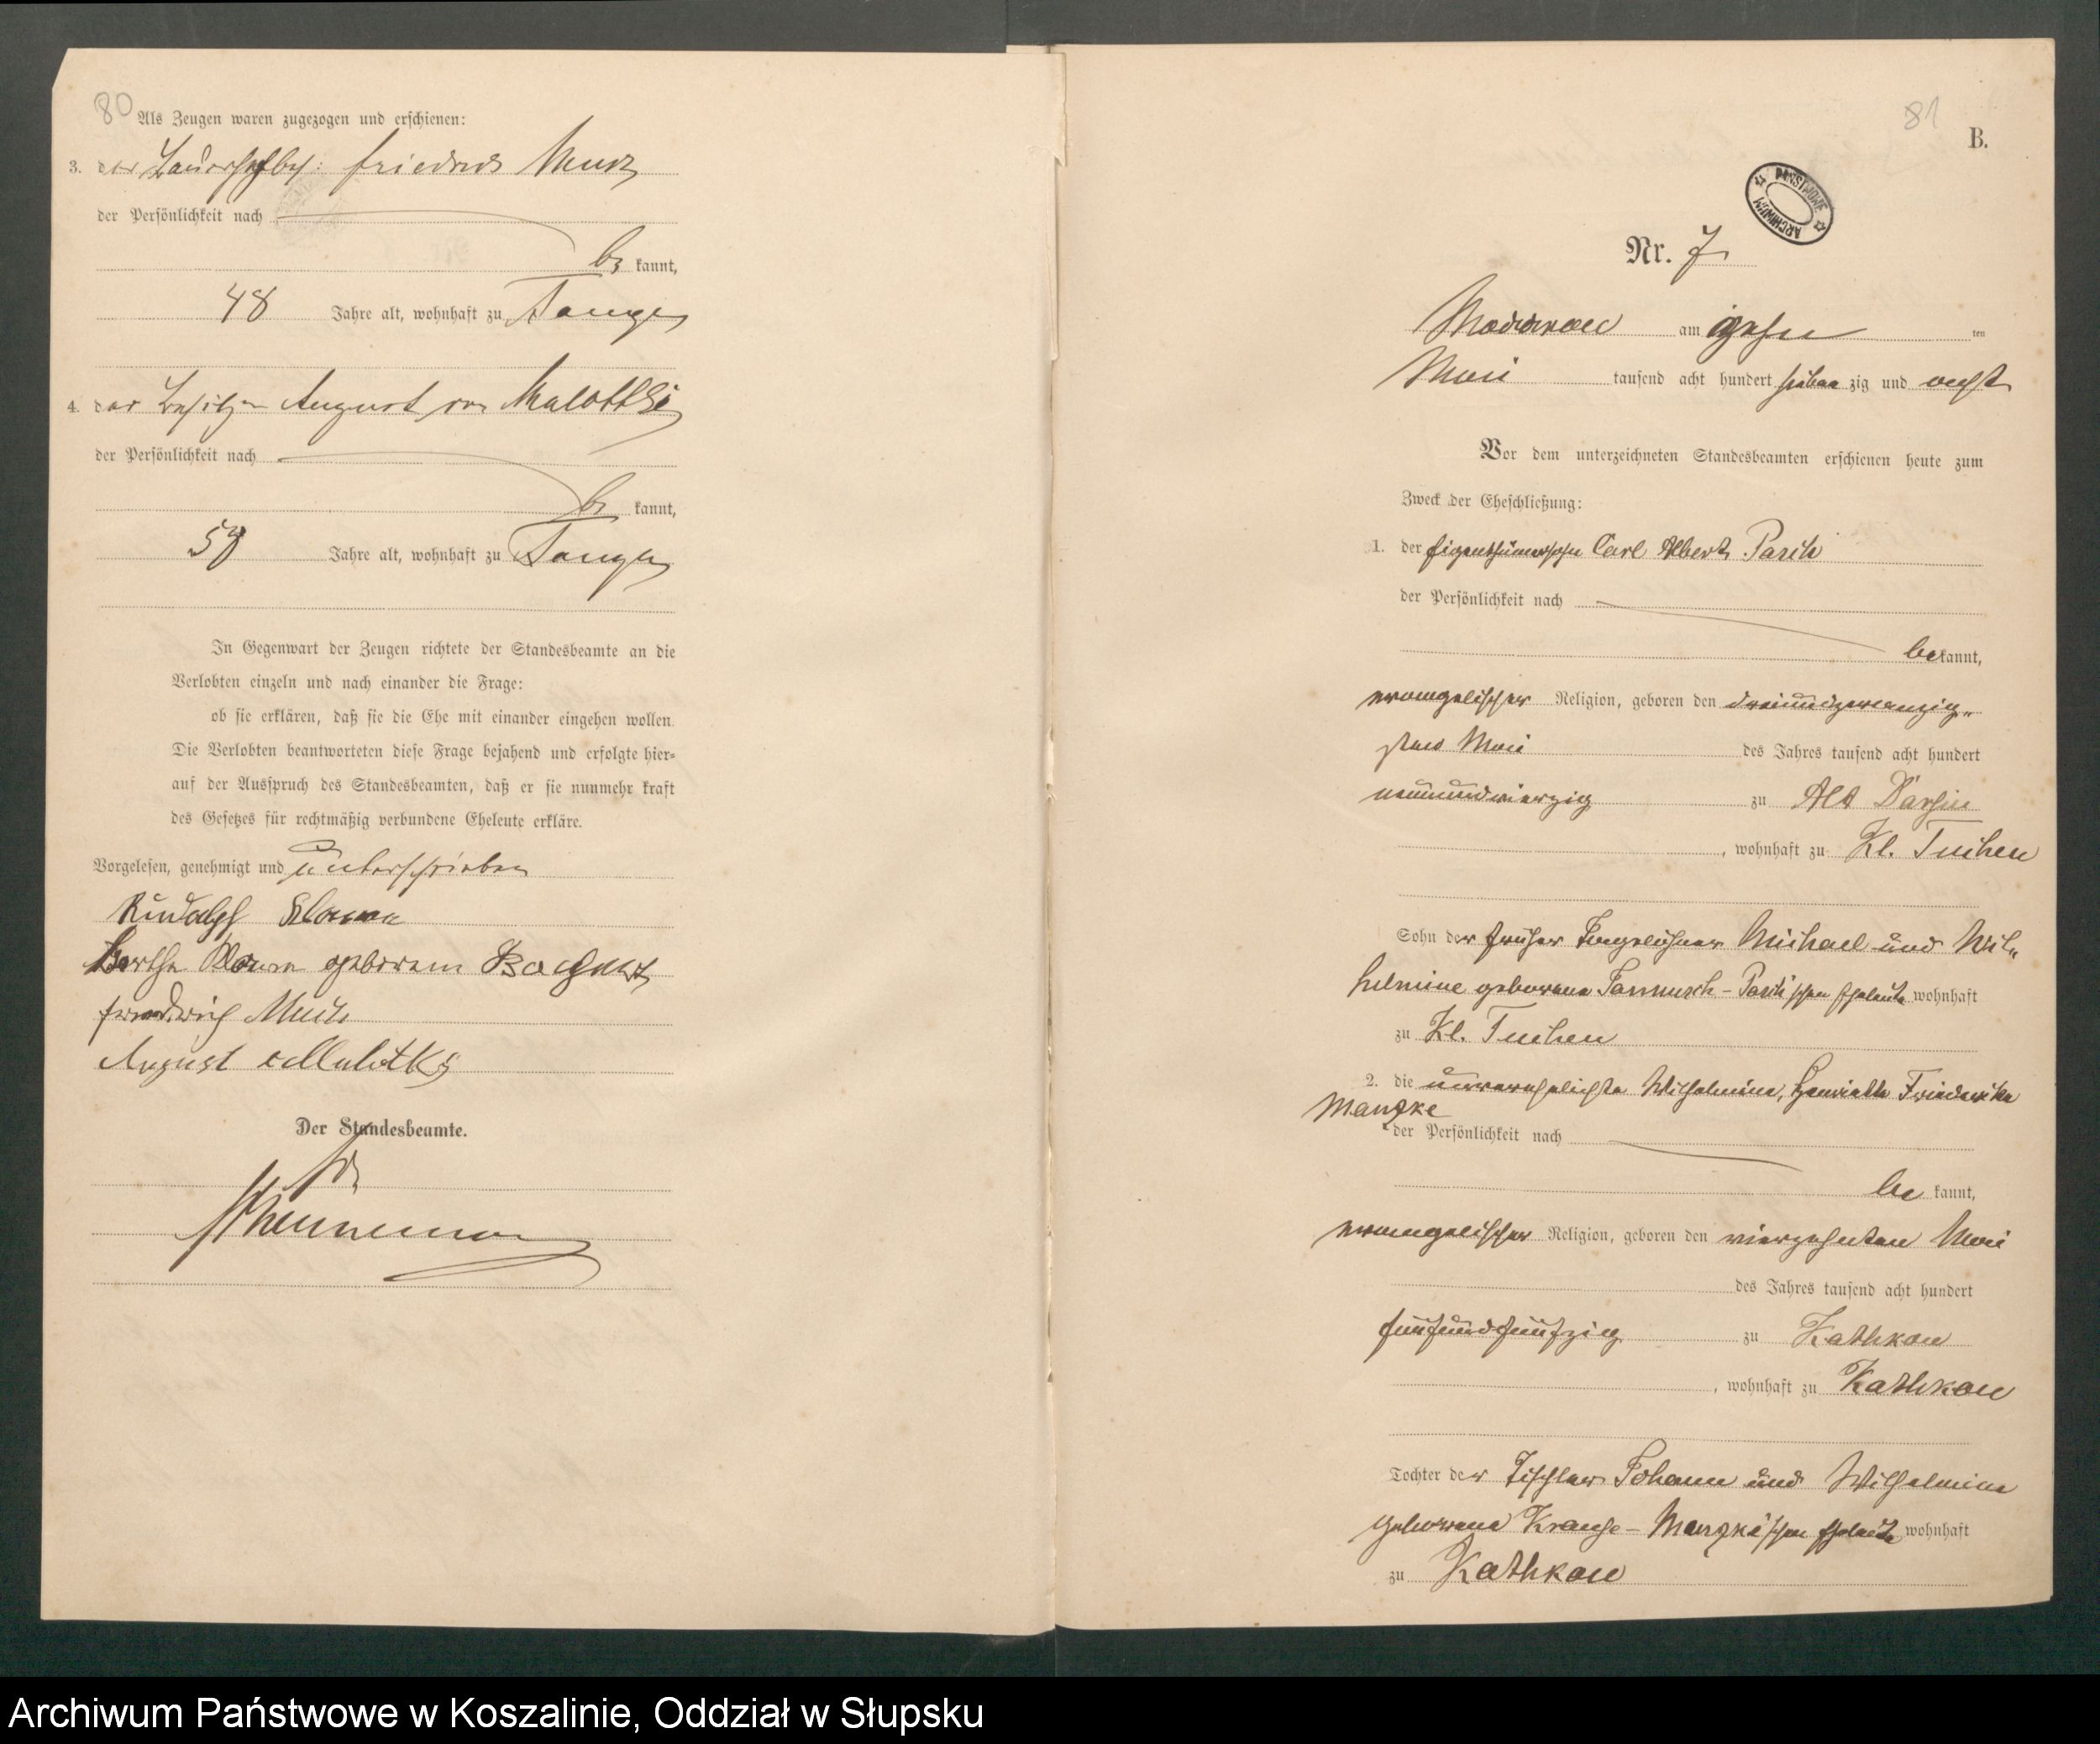 80
Als Zeugen waren zugezogen und erschienen:
3. der Friedrich
der Persönlichkeit nach
be kannt,
48 Jahre alt, wohnhaft zu Tangen
4. der Besitzer August von Malottki
der Persönlichkeit nach
be kannt,
Jahre alt, wohnhaft zu Tangen
In Gegenwart der Zeugen richtete der Standesbeamte an die
Verlobten einzeln und nach einander die Frage:
ob sie erklären, daß sie die Ehe mit einander eingehen wollen.
Die Verlobten beantworteten diese Frage bejahend und erfolgte hier-
auf der Ausspruch des Standesbeamten, daß er sie nunmehr kraft
des Gesetzes für rechtmäßig verbundene Eheleute erkläre.
Vorgelesen, genehmigt und unterschrieben
Rudolph
Bertha geborene
August v Malotki
Der Standesbeamte.
81
B.
PAŃSTWOWE ARCHIWUM
Nr. 7
am zehn ten
Mai tausend acht hundert sieben zig und acht
Vor dem unterzeichneten Standesbeamten erschienen heute zum
Zweck der Eheschließung:
1. der Eigenthümersohn Carl Albert Pasch
der Persönlichkeit nach
be kannt,
evangelischer Religion, geboren den dreiundzwanzig-
sten Mai des Jahres tausend acht hundert
neunundvierzig zu Alt Darsin
, wohnhaft zu Kl. Tuchen
Sohn der früher Tagelöhner Michael und Wil-
helmine geborene - Pasch'schen Eheleute wohnhaft
zu Kl. Tuchen
2. die unverehelichte Wilhelmine, Henriette Friederike
Manzke
der Persönlichkeit nach
be kannt,
evangelischer Religion, geboren den vierzehnten Mai
des Jahres tausend acht hundert
fünfundfünfzig zu Kathkow
, wohnhaft zu Kathkow
Tochter der Tischler Johann und Wilhelmine
geborene Krause - Manzke'schen Eheleute wohnhaft
zu Kathkow
Archiwum Państwowe w Koszalinie, Oddział w Słupsku